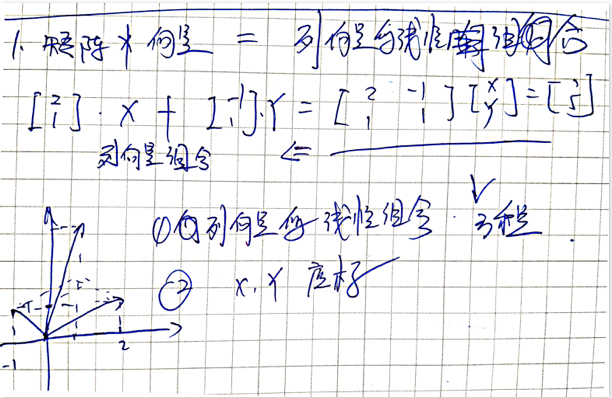 1. 矩阵 * 向量 = 列向量的线性组合
[2 1]·X + [-1 1]·Y = [2 -1 1 1][X Y] = [1 5]
列向量组合 <=
① 列向量的线性组合. 方程.
② X. Y 座标
-1 1 2